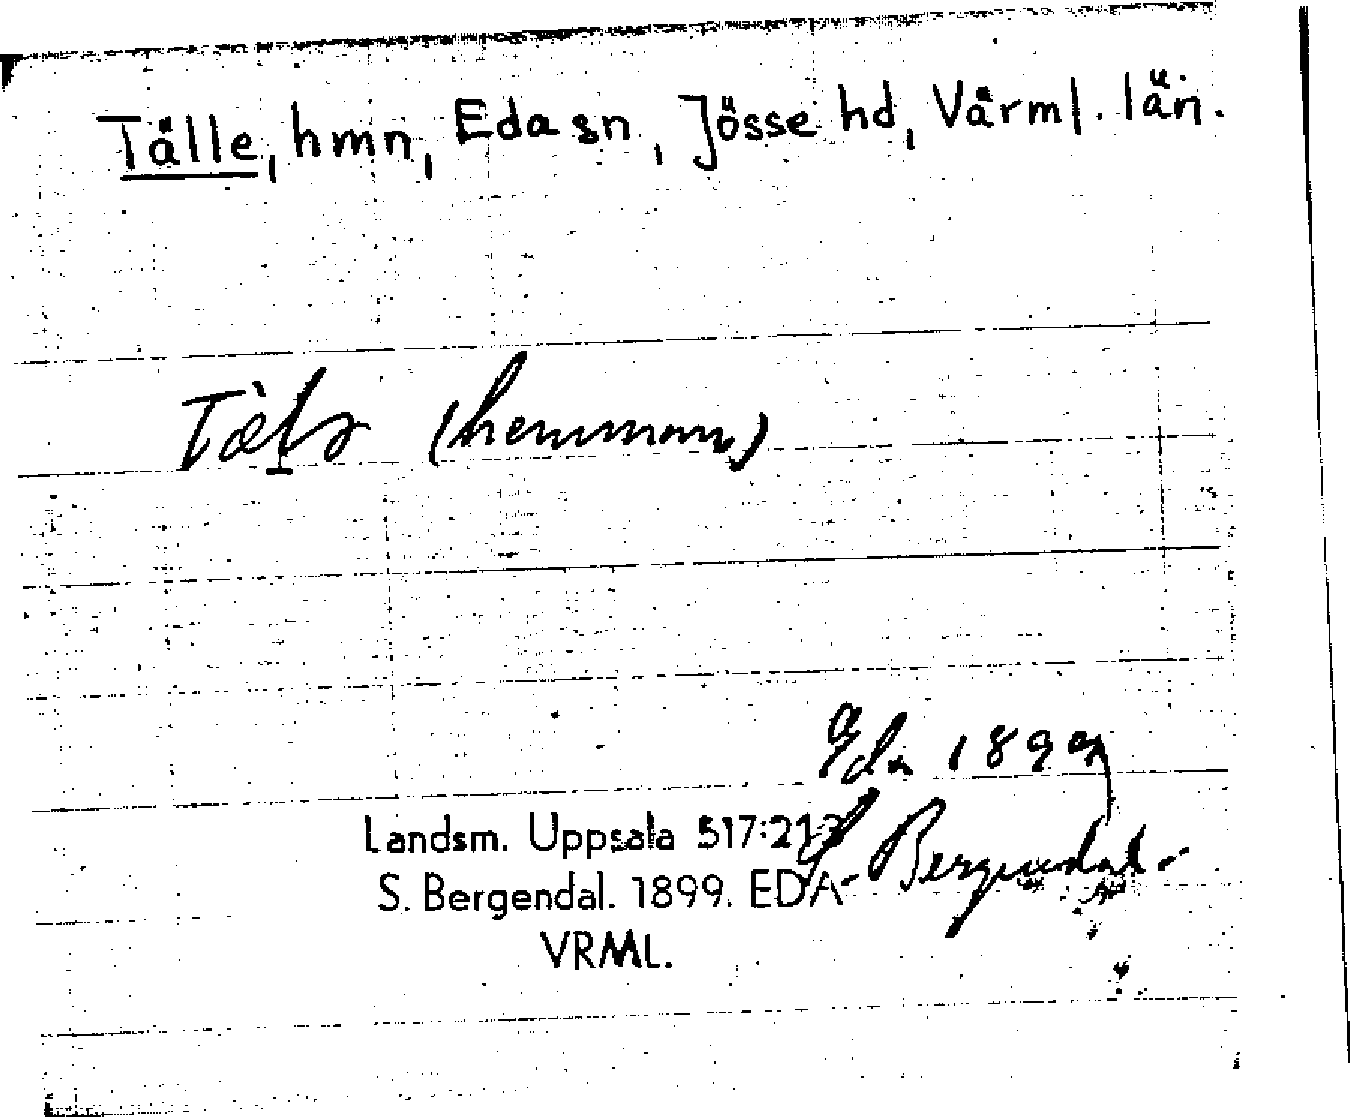 Tälle, hmn, Eda sn, Jösse hd, Värml. län.
(hemman)
Eda 1899
S. Bergendal.
Landsm. Uppsala 517:213
S. Bergendal. 1899. EDA
VRML.